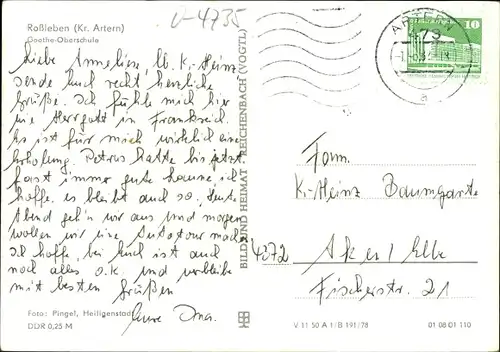 V-4735
Roßleben (Kr. Artern)
Goethe-Oberschule
Liebe Annelien, lb. K.-Heinz
sende Euch recht herzliche
Grüße. Ich fühle mich hier
wie Herrgott in Frankreich.
Es ist für mich wirklich eine
Erholung. Petrus hatte bis jetzt
fast immer gute Laune ich
hoffe es bleibt auch so. Heute
Abend geh'n wir aus und morgen
wollen wir eine Autotour machen
Ich hoffe, bei Euch ist auch
noch alles o.k. und verbleibe
mit besten Grüßen
Eure Ina.
Foto: Pingel, Heiligenstadt
DDR 0,25 M
BILD UND HEIMAT REICHENBACH (VOGTL)
ARTERN
473
a
10
Fam.
K.-Heinz Baumgarte
4372 Aken / Elbe
Fischerstr. 21
V 11 50 A 1/B 191/78
01 08 01 110